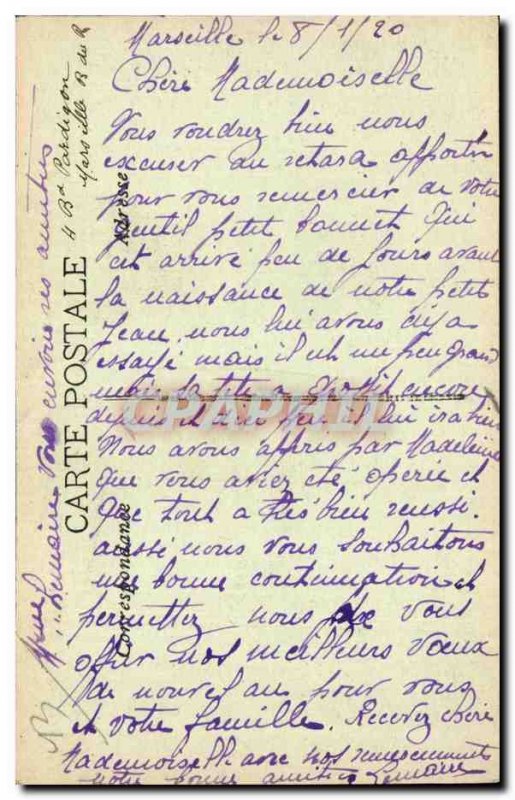 Marseille le 8/1/20
Chère Mademoiselle
Vous voudrez bien nous
excuser du retard apporter
pour vous remercier de votre
gentil petit bonnet qui
est arrivé peu de jours avant
la naissance de notre petit
Jean, nous lui avons déja
essayé mais il est un peu grand
mais sa tête grossit encore
lui ira bien
Nous avons appris par Madeleine
que vous aviez été opérée et
que tout a très bien réussi.
aussi nous vous souhaitons
une bonne continuation et
permettez nous de vous
offrir nos meilleurs vœux
de nouvel an pour vous
et votre famille. Recevez chère
Mademoiselle avec nos remerciements
notre bonne amitié Romain
4 Bd Pardigon
Marseille B du R
Romain vous envoie ses amitiés
CARTE POSTALE
Correspondance
Adresse
CPAPHIL